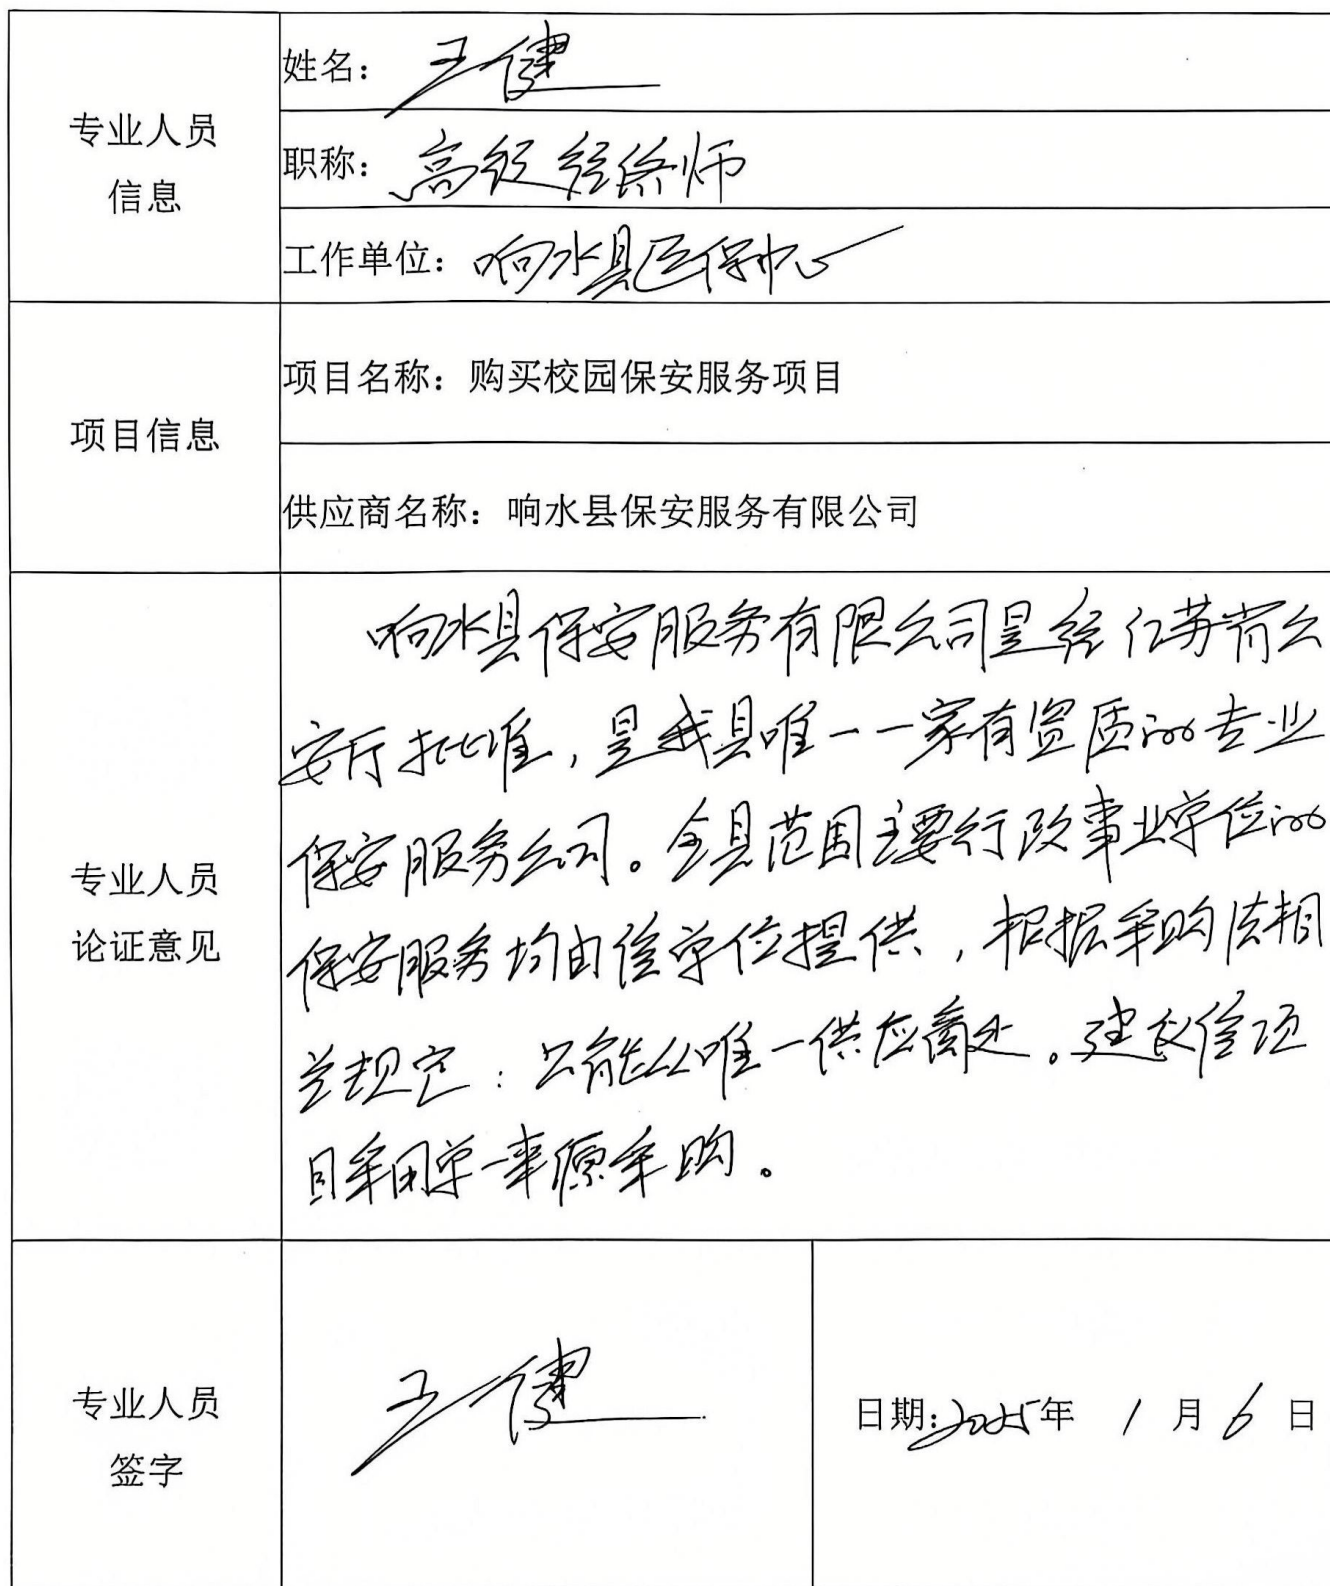 专业人员
信息
姓名：王健
职称：高级经济师
工作单位：响水县医保中心
项目信息
项目名称：购买校园保安服务项目
供应商名称：响水县保安服务有限公司
专业人员
论证意见
响水县保安服务有限公司是经江苏省公
安厅批准，是我县唯一一家有资质的专业
保安服务公司。全县范围主要行政事业单位的
保安服务均由该单位提供，根据采购法相
关规定：只能从唯一供应商处。建议该项
目采用单一来源采购。
专业人员
签字
王健
日期：2025年 1 月 6 日